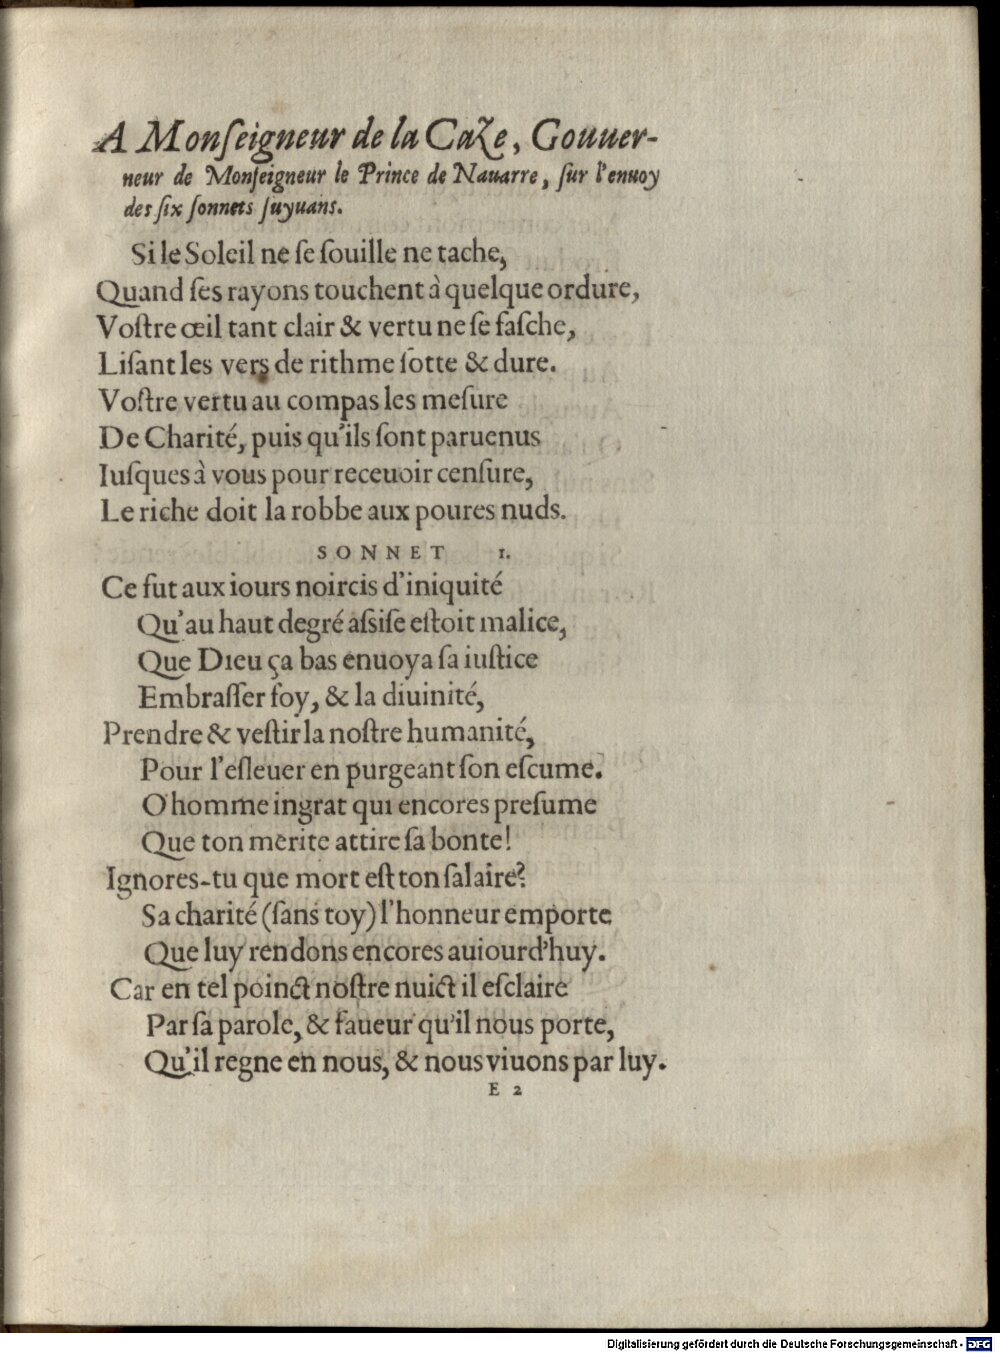 A Monſeigneur de la Caze, Gouuer-
neur de Monſeigneur le Prince de Nauarre, ſur l'enuoy
des ſix ſonnets ſuyuans.
Si le Soleil ne ſe ſouille ne tache,
Quand ſes rayons touchent à quelque ordure,
Voſtre œil tant clair & vertu ne ſe faſche,
Liſant les vers de rithme ſotte & dure.
Voſtre vertu au compas les meſure
De Charité, puis qu'ils ſont paruenus
Iuſques à vous pour receuoir cenſure,
Le riche doit la robbe aux poures nuds.
SONNET 1.
Ce fut aux iours noircis d'iniquité
Qu'au haut degré aſsiſe eſtoit malice,
Que DIEU ça bas enuoya ſa iuſtice
Embraſſer foy, & la diuinité,
Prendre & veſtir la noſtre humanité,
Pour l'eſleuer en purgeant ſon eſcume.
O homme ingrat qui encores preſume
Que ton merite attire ſa bonte!
Ignores-tu que mort eſt ton ſalaire?
Sa charité (ſans toy) l'honneur emporte
Que luy rendons encores auiourd'huy.
Car en tel poinct noſtre nuict il eſclaire
Par ſa parole, & faueur qu'il nous porte,
Qu'il regne en nous, & nous viuons par luy.
E 2
Digitalisierung gefördert durch die Deutsche Forschungsgemeinschaft - DFG